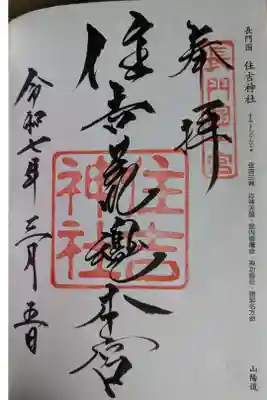 長門国 住吉神社
住吉三神・応神天皇・武内宿禰命・神功皇后・建御名方命
山陽道
奉拝
長門國一宮
住吉荒魂本宮
住吉神社
令和七年三月五日